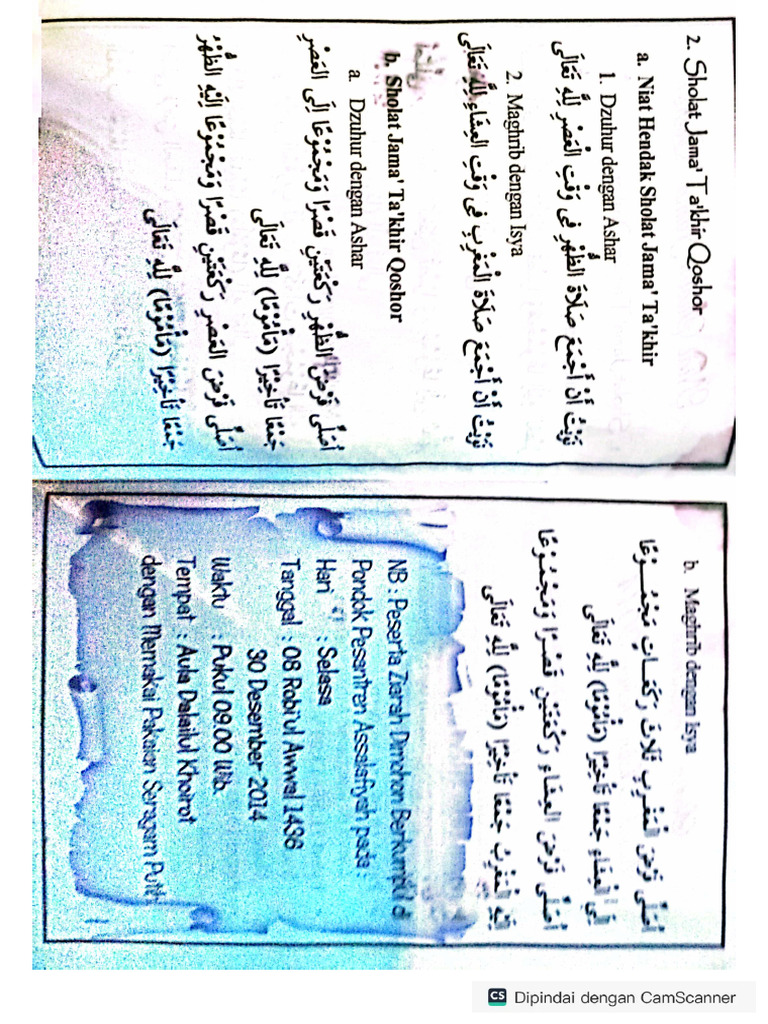 2. Sholat Jama' Ta'khir Qoshor
a. Niat Hendak Sholat Jama' Ta'khir
1. Dzuhur dengan Ashar
نَوَيْتُ أَنْ أَجْمَعَ صَلَاةَ الظُّهْرِ فِى وَقْتِ الْعَصْرِ لِلّٰهِ تَعَالَى
2. Maghrib dengan Isya
نَوَيْتُ أَنْ أَجْمَعَ صَلَاةَ الْمَغْرِبِ فِى وَقْتِ الْعِشَاءِ لِلّٰهِ تَعَالَى
b. Sholat Jama' Ta'khir Qoshor
a. Dzuhur dengan Ashar
أُصَلِّى فَرْضَ الظُّهْرِ رَكْعَتَيْنِ قَصْرًا وَمَجْمُوْعًا اِلَى العَصْرِ
جَمْعًا تَأْخِيْرًا (مَأْمُوْمًا) لِلّٰهِ تَعَالَى
أُصَلِّى فَرْضَ العَصْرِ رَكْعَتَيْنِ قَصْرًا وَمَجْمُوْعًا اِلَيْهِ الظُّهْرُ
جَمْعًا تَأْخِيْرًا (مَأْمُوْمًا) لِلّٰهِ تَعَالَى
b. Maghrib dengan Isya
أُصَلِّى فَرْضَ الْمَغْرِبِ ثَلَاثَ رَكَعَاتٍ مَجْمُوْعًا
اِلَى الْعِشَاءِ جَمْعًا تَأْخِيْرًا (مَأْمُوْمًا) لِلّٰهِ تَعَالَى
أُصَلِّى فَرْضَ العِشَاءِ رَكْعَتَيْنِ قَصْرًا وَمَجْمُوْعًا
اِلَيْهِ الْمَغْرِبُ جَمْعًا تَأْخِيْرًا (مَأْمُوْمًا) لِلّٰهِ تَعَالَى
NB : Peserta Ziarah Dimohon Berkumpul di
Pondok Pesantren Assalafiyah pada :
Hari : Selasa
Tanggal : 08 Robi'ul Awwal 1436
30 Desember 2014
Waktu : Pukul 09.00 Wib.
Tempat : Aula Dalailul Khoirot
dengan Memakai Pakaian Seragam Putih
CS Dipindai dengan CamScanner